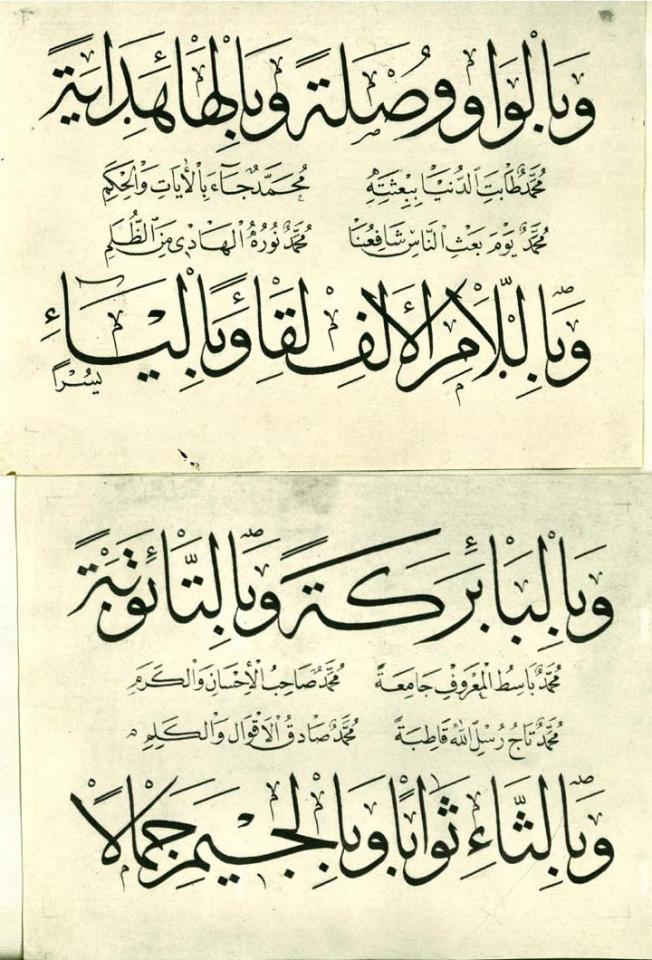 وَبِالْوَاوِ وُصْلَةً وَبِالْهَاءِ هِدَايَةً
مُحَمَّدٌ طَابَتِ الدُّنْيَا بِبِعْثَتِهِ مُحَمَّدٌ جَاءَ بِالْآيَاتِ وَالْحِكَمِ
مُحَمَّدٌ يَوْمَ بَعْثِ النَّاسِ شَافِعُنَا مُحَمَّدٌ نُورُهُ الْهَادِي مِنَ الظُّلَمِ
وَبِاللَّامِ الْأَلِفِ لِقَاءً وَبِالْيَاءِ
يُسْرًا
وَبِالْبَاءِ بَرَكَةً وَبِالتَّاءِ تَوْبَةً
مُحَمَّدٌ بَاسِطُ الْمَعْرُوفِ جَامِعَةً مُحَمَّدٌ صَاحِبُ الْإِحْسَانِ وَالْكَرَمِ
مُحَمَّدٌ تَاجُ رُسْلِ اللهِ قَاطِبَةً مُحَمَّدٌ صَادِقُ الْأَقْوَالِ وَالْكَلِمِ
وَبِالثَّاءِ ثَوَابًا وَبِالْجِيمِ جَمَالًا